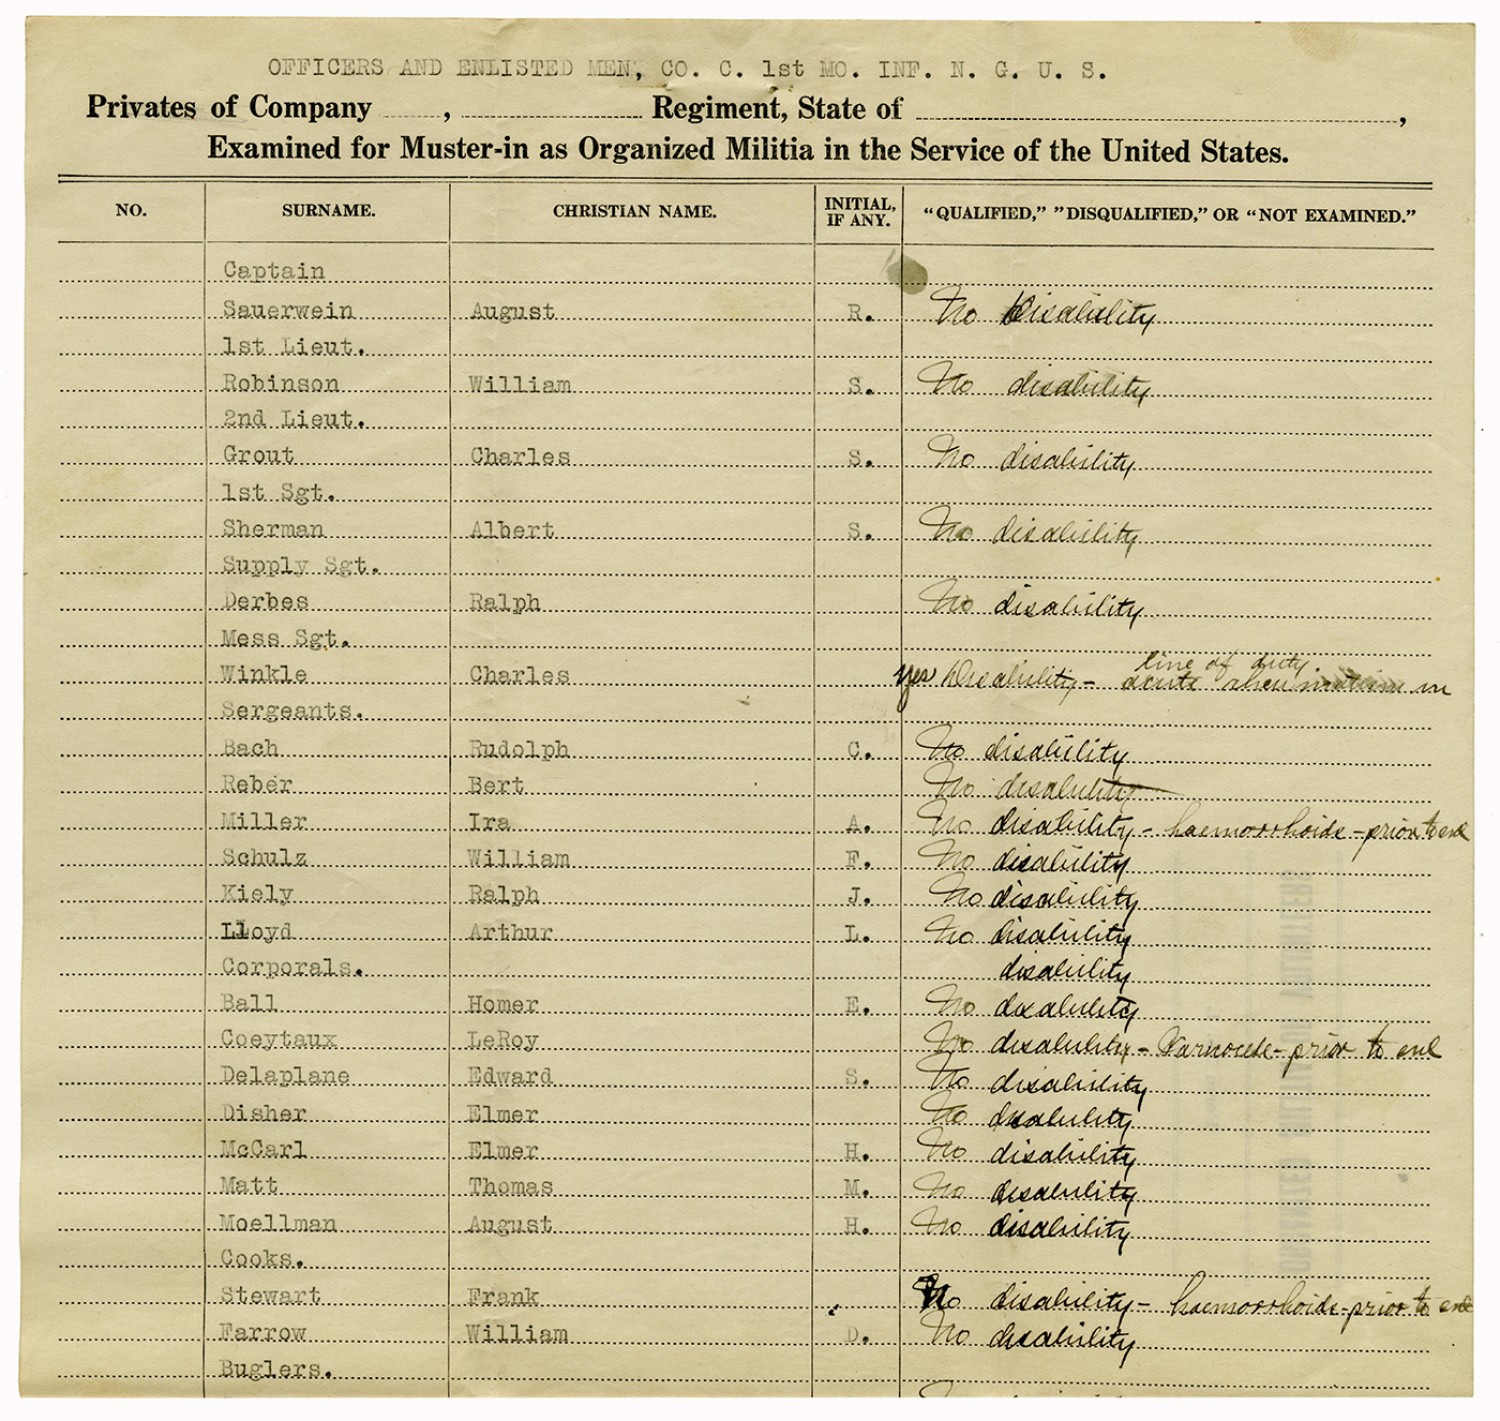 OFFICERS AND ENLISTED MEN, CO. C. 1st MO. INF. N. G. U. S.
Privates of Company , Regiment, State of ,
Examined for Muster-in as Organized Militia in the Service of the United States.
NO. SURNAME. CHRISTIAN NAME. INITIAL, IF ANY. "QUALIFIED," "DISQUALIFIED," OR "NOT EXAMINED."
Captain
Sauerwein August R. No Disability
1st Lieut.
Robinson William S. No disability
2nd Lieut.
Grout Charles S. No disability
1st Sgt.
Sherman Albert S. No disability
Supply Sgt.
Derbes Ralph No disability
Mess Sgt.
line of duty.
Winkle Charles yes Disability - acute rheumatism in
Sergeants.
Bach Rudolph C. No disability
Reber Bert No disability
Miller Ira A. No disability - haemorrhoids - prior to enl
Schulz William F. No disability
Kiely Ralph J. No disability
Lloyd Arthur L. No disability
Corporals. disability
Ball Homer E. No disability
Coeytaux LeRoy No disability - Varicocele - prior to enl
Delaplane Edward S. No disability
Disher Elmer No disability
McCarl Elmer H. No disability
Matt Thomas M. No disability
Moellman August H. No disability
Cooks.
Stewart Frank No disability - haemorrhoids - prior to enl
Farrow William D. No disability
Buglers.